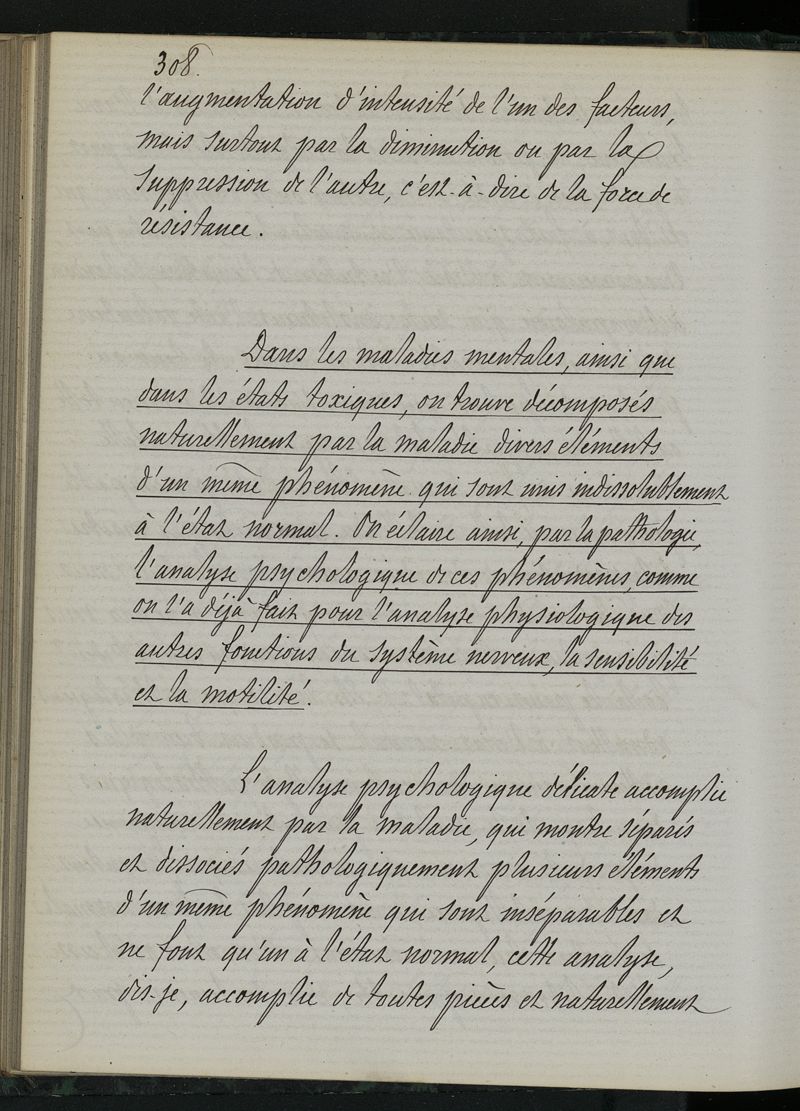 308.
l'augmentation d'intensité de l'un des facteurs,
mais surtout par la diminution ou par la
suppression de l'autre, c'est-à-dire de la force de
résistance.
Dans les maladies mentales, ainsi que
dans les états toxiques, on trouve décomposés
naturellement par la maladie divers éléments
d'un même phénomène qui sont unis indissolublement
à l'état normal. On éclaire ainsi, par la pathologie,
l'analyse psychologique de ces phénomènes, comme
on l'a déjà fait pour l'analyse physiologique des
autres fonctions du système nerveux, la sensibilité
et la motilité.
L'analyse psychologique délicate accomplie
naturellement par la maladie, qui montre séparés
et dissociés pathologiquement plusieurs éléments
d'un même phénomène qui sont inséparables et
ne font qu'un à l'état normal, cette analyse,
dis-je, accomplie de toutes pièces et naturellement